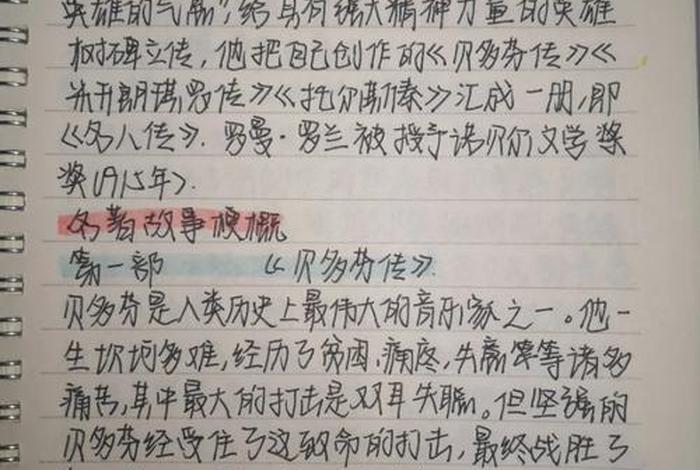 英雄的气质",给具有强大精神力量的英雄
树碑立传,他把自己创作的《贝多芬传》《
米开朗琪罗传》《托尔斯泰》汇成一册,即
《名人传》.罗曼·罗兰被授予诺贝尔文学奖
奖(1915年).
名著故事梗概
第一部 《贝多芬传》
贝多芬是人类历史上最伟大的音乐家之一。他一
生坎坷多难,经历了贫困,病疼,失意等等诸多
痛苦,其中最大的打击是双耳失聪。但坚强的
贝多芬经受住了这致命的打击,最终战胜了